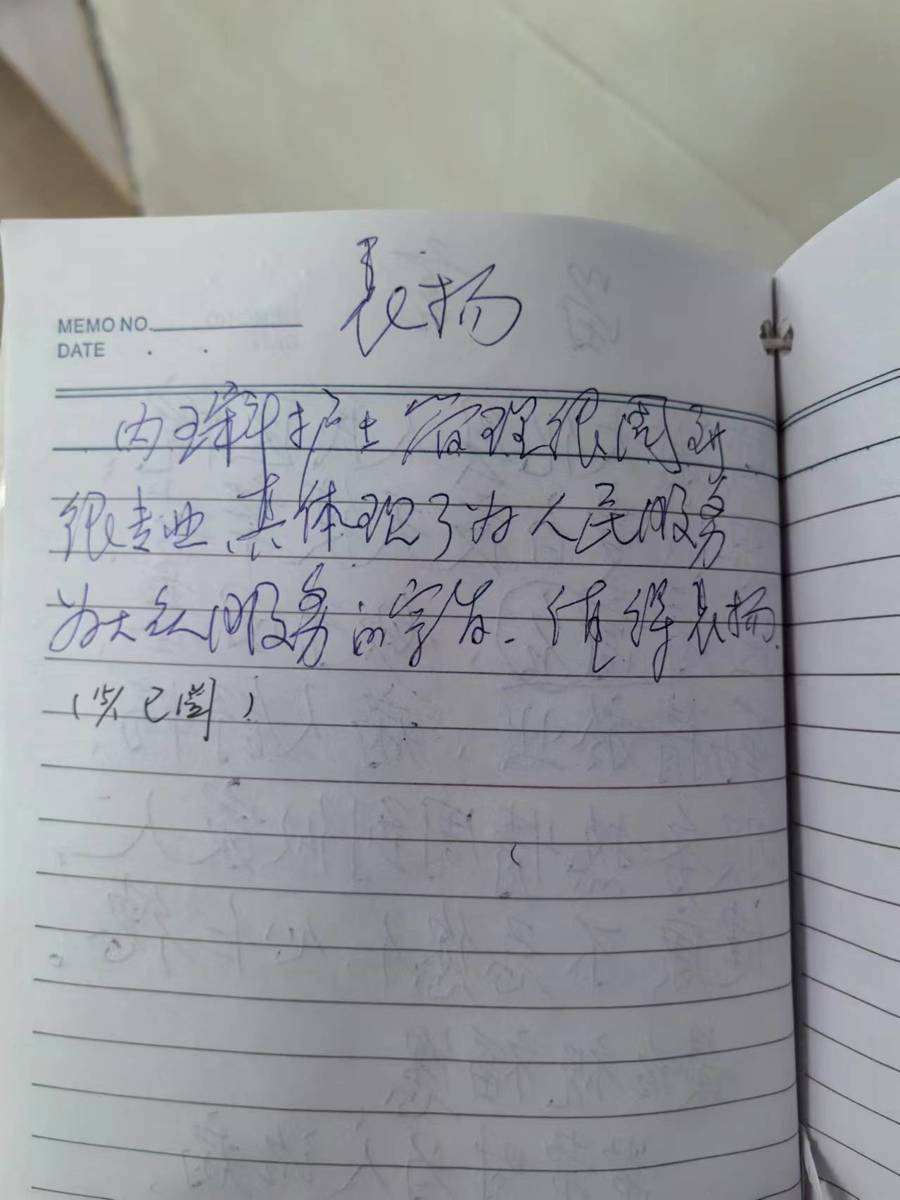 表扬
MEMO NO.
DATE . .
内二科护士管理很周到
很专业、真体现了为人民服务
为大众服务的宗旨、值得表扬
已阅